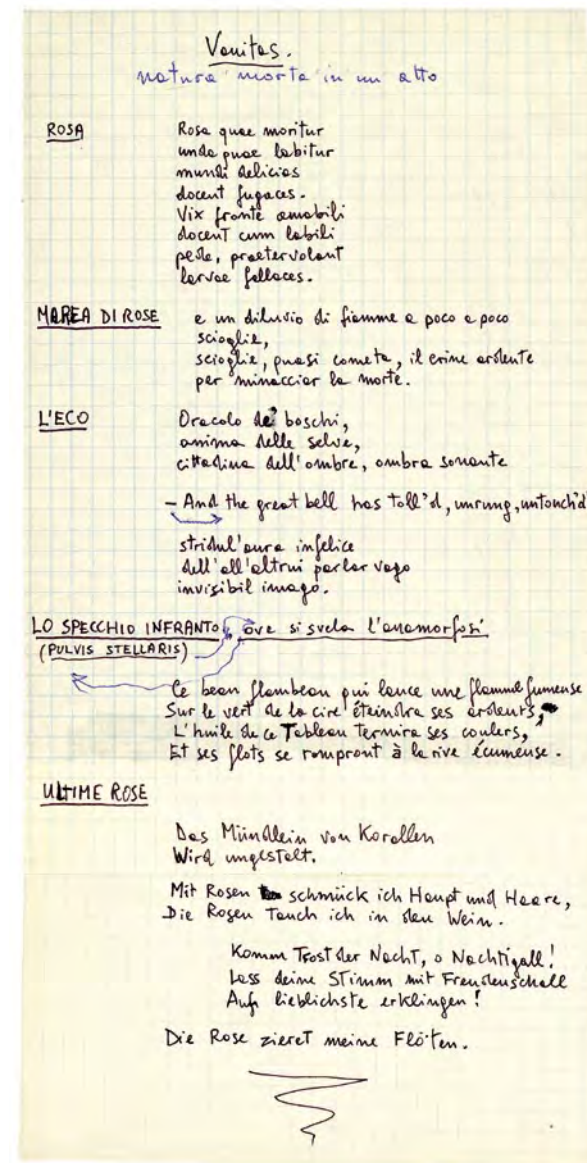 Vanitas.
natura morta in un atto
ROSA
Rosa quae moritur
unda quae labitur
mundi delicias
docent fugaces.
Vix fronte amabili
docent cum labili
pede, praetervolant
larvae fallaces.
MAREA DI ROSE
e un diluvio di fiamme a poco a poco
scioglie,
scioglie, quasi cometa, il crine ardente
per minacciar la morte.
L'ECO
Oracolo de' boschi,
anima delle selve,
cittadina dell'ombre, ombra sonante
– And the great bell has toll'd, unrung, untouch'd
stridul'aura infelice
dell'all'altrui parlar vago
invisibil imago.
LO SPECCHIO INFRANTO, ove si svela l'anamorfosi
(PULVIS STELLARIS)
Ce beau flambeau qui lance une flamme fumeuse
Sur le vert de la cire éteindra ses ardeurs,
L'huile de ce Tableau ternira ses coulers,
Et ses flots se rompront à la rive écumeuse.
ULTIME ROSE
Das Mündlein von Korallen
Wird ungestalt.
Mit Rosen schmück ich Haupt und Haare,
Die Rosen tauch ich in den Wein.
Komm Trost der Nacht, o Nachtigall!
Lass deine Stimm mit Freudenschall
Aufs lieblichste erklingen!
Die Rose zieret meine Flöten.